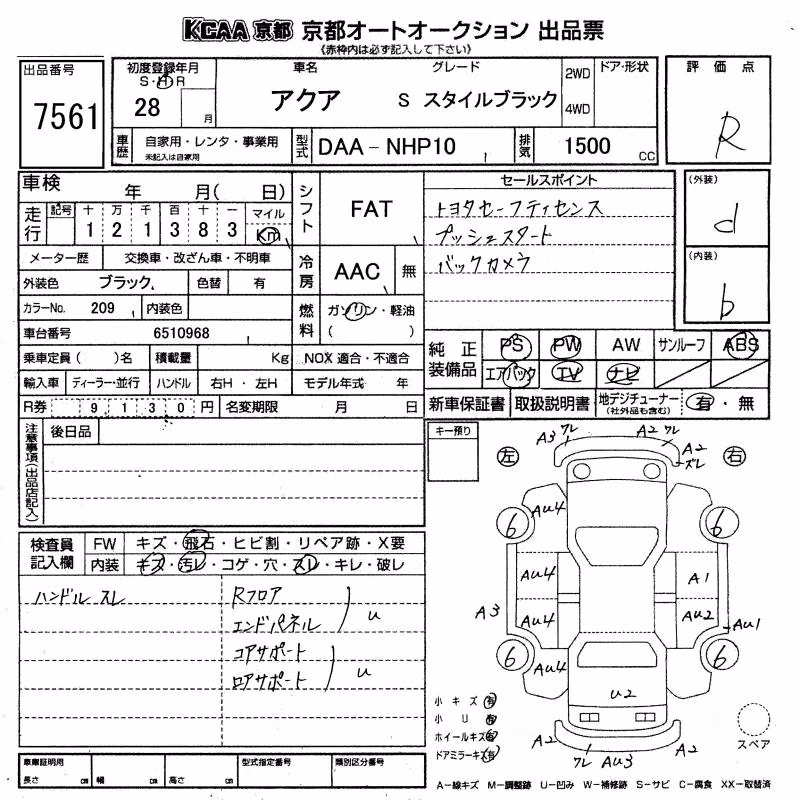 KCAA 京都 京都オートオークション 出品票
《赤枠内は必ず記入して下さい》
出品番号
7561
初度登録年月
S・H・R
28 月
車名
アクア
グレード
S スタイルブラック
2WD
4WD
ドア・形状
評価点
R
車歴
自家用・レンタ・事業用
未記入は自家用
型式
DAA-NHP10
排気
1500 CC
車検 年 月( 日)
走行
記号 十 万 千 百 十 一 マイル
1 2 1 3 8 3 Km
メーター歴 交換車・改ざん車・不明車
外装色 ブラック 色替 有
カラーNo. 209 内装色
車台番号 6510968
乗車定員( )名 積載量 Kg NOX 適合・不適合
輸入車 ディーラー・並行 ハンドル 右H・左H モデル年式 年
R券 9130円 名変期限 月 日
シフト
FAT
冷房
AAC 無
燃料
ガソリン・軽油
( )
セールスポイント
トヨタセーフティセンス
プッシュスタート
バックカメラ
(外装)
d
(内装)
b
純正装備品
PS PW AW サンルーフ ABS
エアバック TV ナビ
新車保証書 取扱説明書 地デジチューナー
(社外品も含む)
有・無
注意事項(出品店記入)
後日品
キー預り
左
右
検査員記入欄
FW キズ・飛石・ヒビ割・リペア跡・X要
内装 キズ・汚レ・コゲ・穴・スレ・キレ・破レ
ハンドル スレ
Rフロア
エンドパネル
u
コアサポート
ロアサポート
u
A3 ワレ A2 ワレ A2
ズレ
6 AU4 6
AU4 A1
A3 AU4 AU2 AU1
6 AU4 6
U2
A2 ワレ AU3 A2
小キズ 有
小U 有
ホイールキズ 有
ドアミラーキズ 有
スペア
車庫証明用
長さ cm 幅 cm 高さ cm
型式指定番号
類別区分番号
A-線キズ M-調整跡 U-凹み W-補修跡 S-サビ C-腐食 XX-取替済